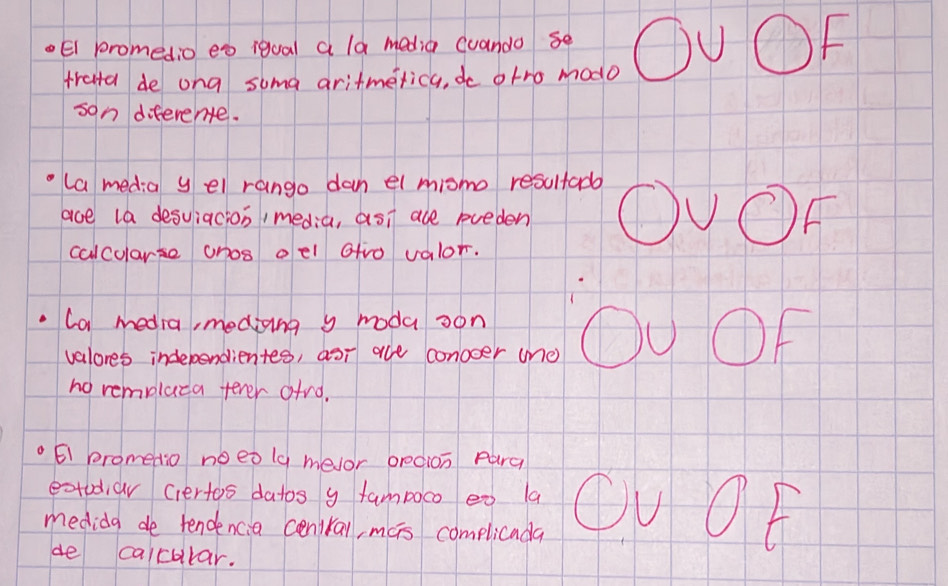 • El promedio es igual a la media cuando se
trata de una suma aritmética, de otro modo
son diferente.
O V O F
• La media y el rango dan el mismo resultado
que la desviación, media, así que pueden
calcularse unos o el otro valor.
O V O F
• La media, mediana y moda son
valores independientes, así que conocer uno
no remplaza tener otro.
O V O F
• El promedio no es la mejor opción para
estudiar ciertos datos y tampoco es la
medida de tendencia central, más complicada
de calcular.
O V O F